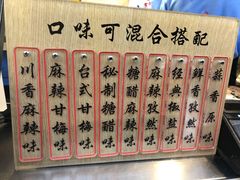 口味可混合搭配
蒜香原味
鲜香孜然味
經典椒鹽味
麻辣孜然味
糖醋麻辣味
秘制糖醋味
台式甘梅味
麻辣甘梅味
川香麻辣味